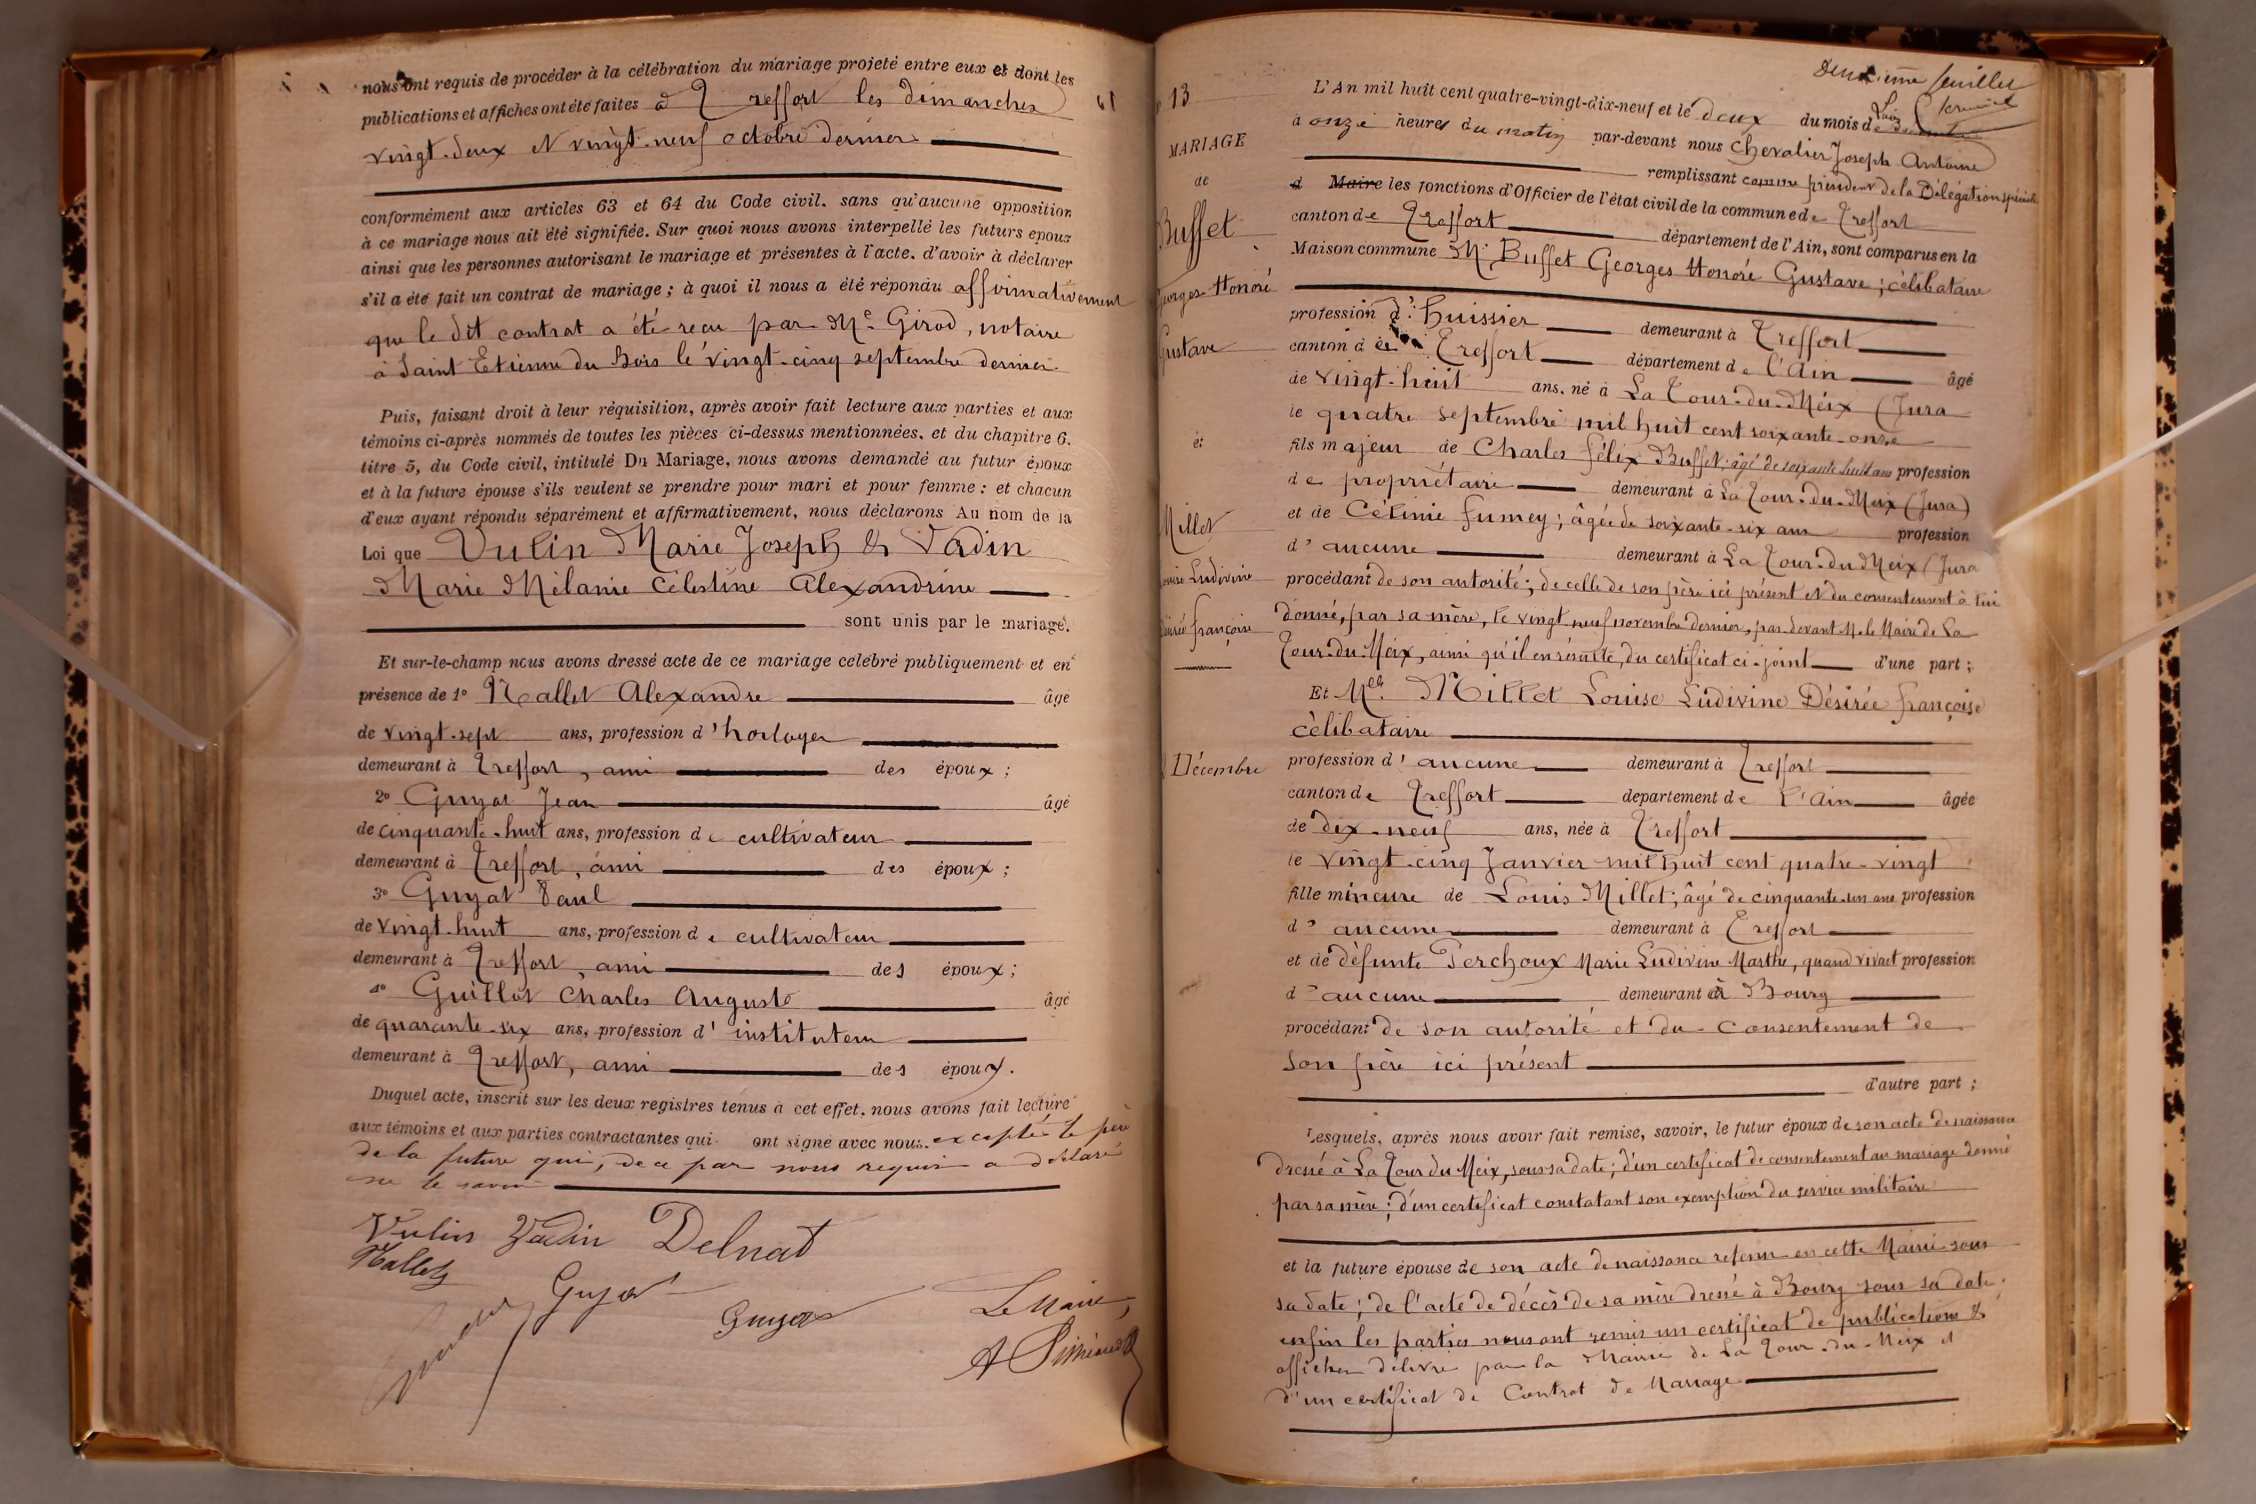 nous ont requis de procéder à la célébration du mariage projeté entre eux et dont les
publications et affiches ont été faites à Treffort les dimanches
vingt-deux et vingt-neuf octobre dernier
conformément aux articles 63 et 64 du Code civil. sans qu'aucune opposition
à ce mariage nous ait été signifiée. Sur quoi nous avons interpellé les futurs époux
ainsi que les personnes autorisant le mariage et présentes à l'acte. d'avoir à déclarer
s'il a été fait un contrat de mariage ; à quoi il nous a été répondu affirmativement
que le dit contrat a été reçu par Me Girod, notaire
à Saint Etienne du Bois le vingt-cinq septembre dernier.
Puis, faisant droit à leur réquisition, après avoir fait lecture aux parties et aux
témoins ci-après nommés de toutes les pièces ci-dessus mentionnées. et du chapitre 6.
titre 5, du Code civil, intitulé Du Mariage, nous avons demandé au futur époux
et à la future épouse s'ils veulent se prendre pour mari et pour femme : et chacun
d'eux ayant répondu séparément et affirmativement, nous déclarons Au nom de la
Loi que Vulin Marie Joseph & Vadin
Marie Mélanie Célestine Alexandrine
sont unis par le mariage.
Et sur-le-champ nous avons dressé acte de ce mariage célébré publiquement et en
présence de 1° Nallet Alexandre âgé
de vingt-sept ans, profession d'horloger
demeurant à Treffort, ami des époux ;
2° Guyot Jean âgé
de cinquante-huit ans, profession de cultivateur
demeurant à Treffort, ami des époux ;
3° Guyot Paul
de vingt-huit ans, profession de cultivateur
demeurant à Treffort, ami des époux ;
4° Guillot Charles Auguste âgé
de quarante-six ans, profession d'instituteur
demeurant à Treffort, ami des époux.
Duquel acte, inscrit sur les deux registres tenus à cet effet. nous avons fait lecture
aux témoins et aux parties contractantes qui ont signé avec nous. excepté le père
de la future qui, de ce par nous requis a déclaré
ne le savoir
Vulin Vadin Delnat
Nallet
Guyot
Guyot Le Maire,
61
Deuxième feuillet
13
MARIAGE
de
Buffet
Georges Honoré
Gustave
et
Millet
Louise Ludivine
Désirée françoise
2 Décembre
L'An mil huit cent quatre-vingt-dix-neuf et le deux du mois de
à onze heures du matin par-devant nous Chevalier Joseph Antoine
remplissant comme président de la Délégation spéciale
d Maire les fonctions d'Officier de l'état civil de la commune de Treffort
canton de Treffort département de l'Ain, sont comparus en la
Maison commune Mr Buffet Georges Honoré Gustave ; célibataire
profession d'huissier demeurant à Treffort
canton de Treffort département de l'Ain âgé
de vingt-huit ans. né à La Tour-du-Meix (Jura
le quatre septembre mil huit cent soixante-onze
fils majeur de Charles Félix Buffet ; âgé de soixante huit ans profession
de propriétaire demeurant à La Tour-du-Meix (Jura)
et de Célinie Fumey ; âgée de soixante-six ans profession
d'aucune demeurant à La Tour-du-Meix (Jura
procédant de son autorité ; de celle de son père ici présent et du consentement à lui
donné, par sa mère, le vingt neuf novembre dernier, par devant M. le Maire de La
Tour-du-Meix, ainsi qu'il en résulte, du certificat ci-joint d'une part ;
Et Melle Millet Louise Ludivine Désirée françoise
célibataire
profession d'aucune demeurant à Treffort
canton de Treffort département de l'Ain âgée
de dix-neuf ans, née à Treffort
le vingt-cinq Janvier mil huit cent quatre-vingt
fille mineure de Louis Millet ; âgé de cinquante-un ans profession
d'aucune demeurant à Treffort
et de défunte Perchoux Marie Ludivine Marthe, quand vivait profession
d'aucune demeurant à Bourg
procédant de son autorité et du consentement de
son père ici présent
d'autre part ;
Lesquels, après nous avoir fait remise, savoir, le futur époux de son acte de naissance
dressé à La Tour du Meix, sous sa date ; d'un certificat de consentement au mariage donné
par sa mère ; d'un certificat constatant son exemption du service militaire
et la future épouse de son acte de naissance retenu en cette Mairie sous
sa date ; de l'acte de décès de sa mère dressé à Bourg sous sa date ;
enfin les parties nous ont remis un certificat de publications &
affiches délivré par la Mairie de La Tour-du-Meix et
d'un certificat de Contrat de Mariage